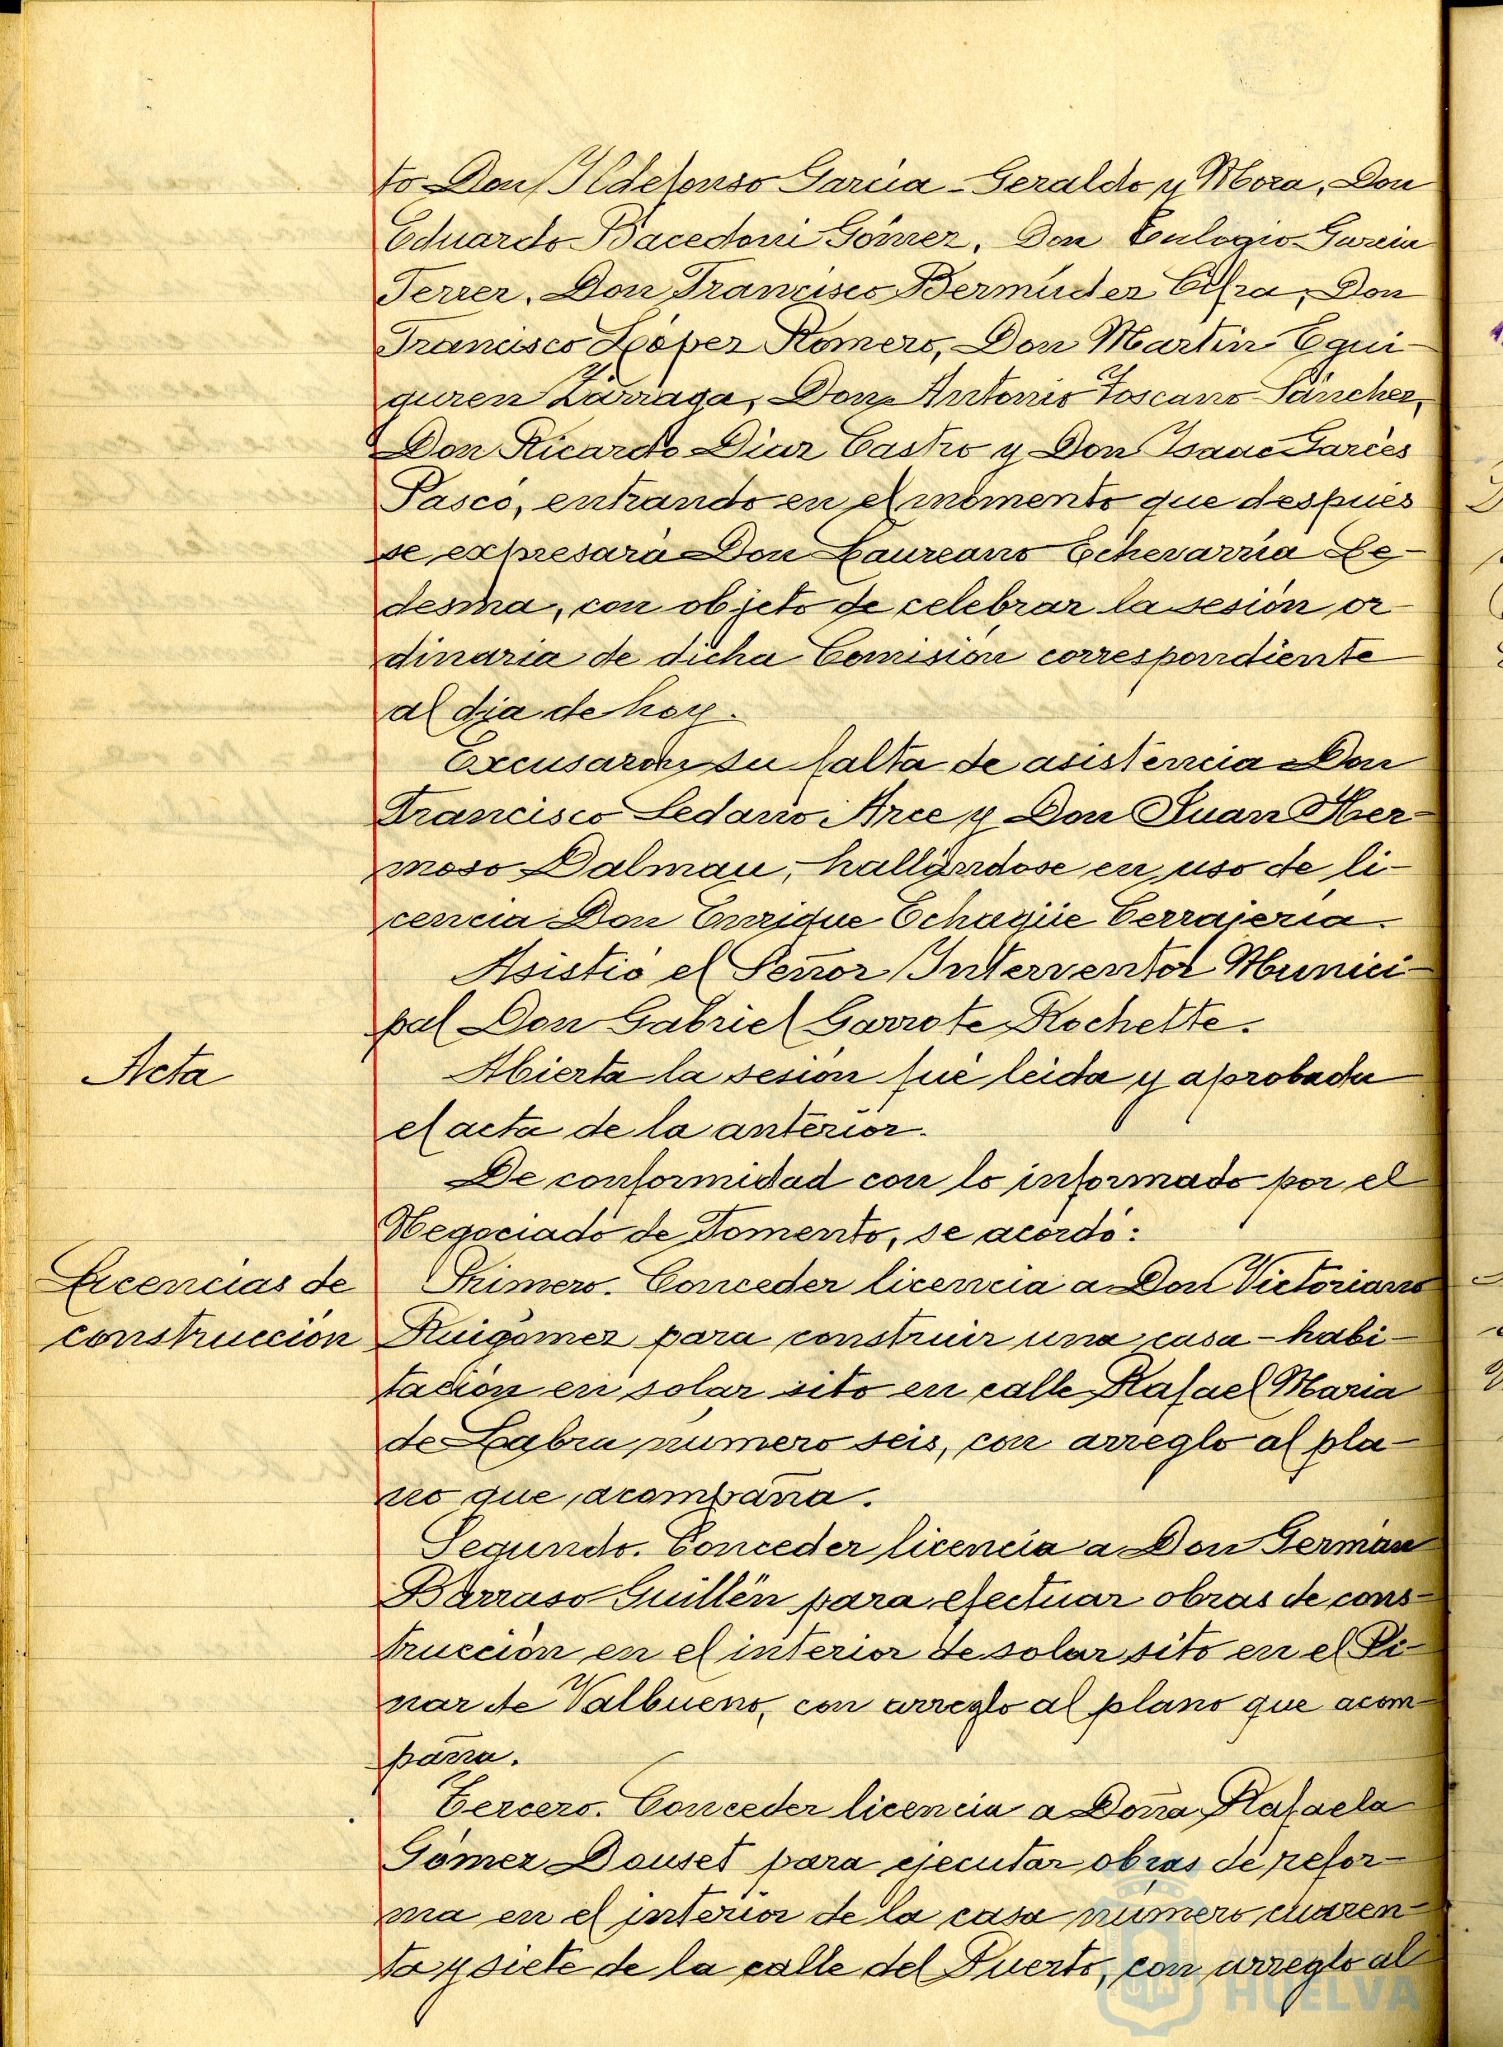 to Don Ildefonso García-Geraldo y Mora, Don
Eduardo Bacedoni Gómez, Don Eulogio Garcia
Ferrer, Don Francisco Bermúdez Cifra, Don
Francisco López Romero, Don Martín Egui-
guren Zárraga, Don Antonio Toscano Sánchez,
Don Ricardo Diaz Castro y Don Isaac Garcés
Pascó, entrando en el momento que después
se expresará Don Laureano Echevarría Le-
desma, con objeto de celebrar la sesión or
dinaria de dicha Comisión correspondiente
al dia de hoy.
Excusaron su falta de asistencia Don
Francisco Sedano Arce y Don Juan Her-
moso Dalmau, hallándose en uso de li-
cencia Don Enrique Echagüe Cerrajería.
Asistió el Señor Interventor Munici-
pal Don Gabriel Garrote Rochette.
Acta
Abierta la sesión fué leida y aprobada
el acta de la anterior.
De conformidad con lo informado por el
Negociado de Fomento, se acordó:
Licencias de
construcción
Primero. Conceder licencia a Don Victoriano
Ruigómez para construir una casa-habi-
tación en solar sito en calle Rafael Maria
de Labra número seis, con arreglo al pla-
no que acompaña.
Segundo. Conceder licencia a Don Germán
Barraso Guillén para efectuar obras de cons-
trucción en el interior de solar sito en el Pi-
nar de Valbueno, con arreglo al plano que acom-
paña.
Tercero. Conceder licencia a Doña Rafaela
Gómez Dauset para ejecutar obras de refor-
ma en el interior de la casa número cuaren-
ta y siete de la calle del Puerto, con arreglo al
HUELVA